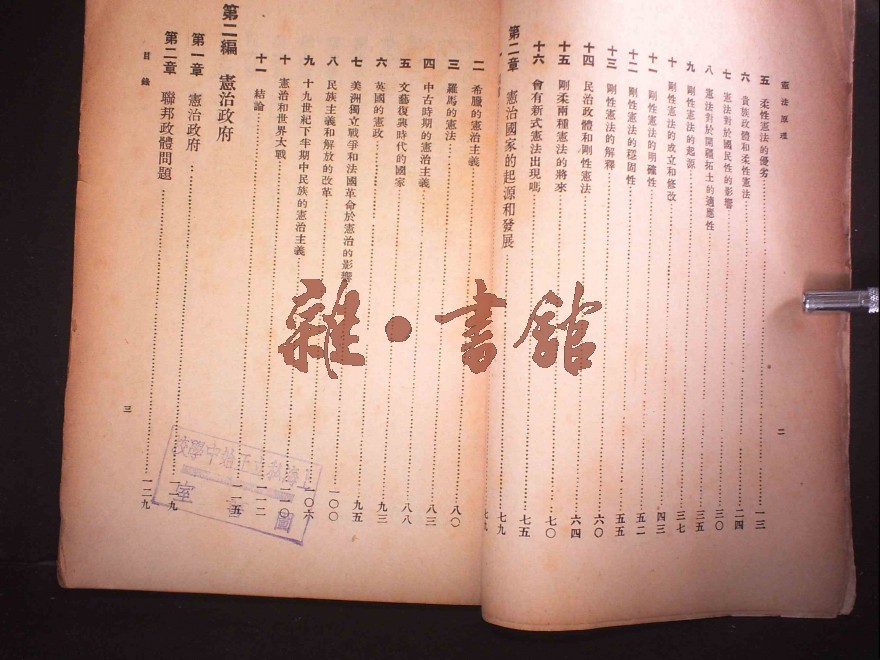 憲法原理
五 柔性憲法的優劣 一三
六 貴族政體和柔性憲法 二四
七 憲法對於國民性的影響 三〇
八 憲法對於開疆拓土的適應性 三五
九 剛性憲法的起源 三七
十 剛性憲法的成立和修改 四三
十一 剛性憲法的明確性 五二
十二 剛性憲法的穩固性 五五
十三 剛性憲法的解釋 六〇
十四 民治政體和剛性憲法 六四
十五 剛柔兩種憲法的將來 七〇
十六 會有新式憲法出現嗎 七五
第二章 憲治國家的起源和發展 七九
一 七九
二
二 希臘的憲治主義 八〇
三 羅馬的憲法 八三
四 中古時期的憲治主義 八八
五 文藝復興時代的國家 九三
六 英國的憲政 九五
七 美洲獨立戰爭和法國革命於憲治的影響 一〇〇
八 民族主義和解放的改革 一〇六
九 十九世紀下半期中民族的憲治主義 一一〇
十 憲治和世界大戰 一一二
十一 結論 一一五
第二編 憲治政府
第一章 憲治政府 一一九
第二章 聯邦政體問題 一二九
目錄
三
雜·書館
上海私立正始中學校
圖書室